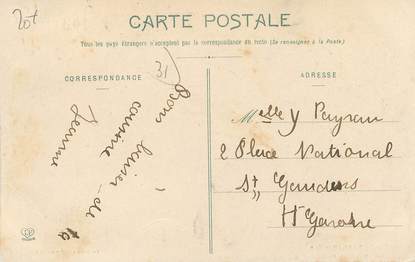 20+
CARTE POSTALE
Tous les pays étrangers n'acceptent pas la correspondance au recto (Se renseigner à la Poste)
31
CORRESPONDANCE
Bons baisers de ta
cousine
Jeanne
ADRESSE
Melle Y Payrau
2 Place National
St Gaudens
Hte Garonne